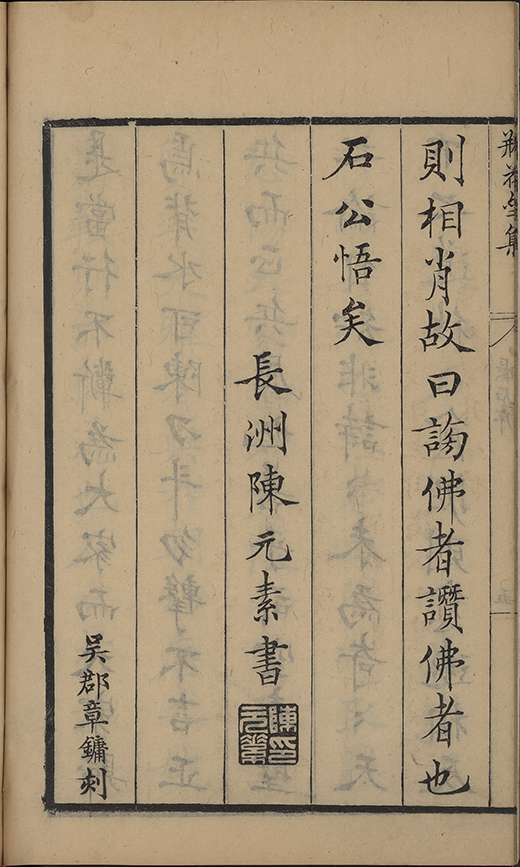 則相肖故曰謗佛者讚佛者也
石公悟矣
長洲陳元素書
陳印元素
吳郡章鏞刻